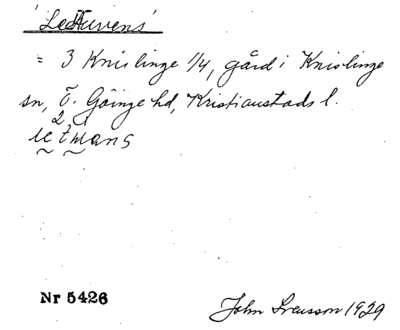 = 3 Knislinge 1/4, gård i Knislinge
sn, Ö. Göinge hd, Kristianstads l.
Nr 5426
John Svensson 1929